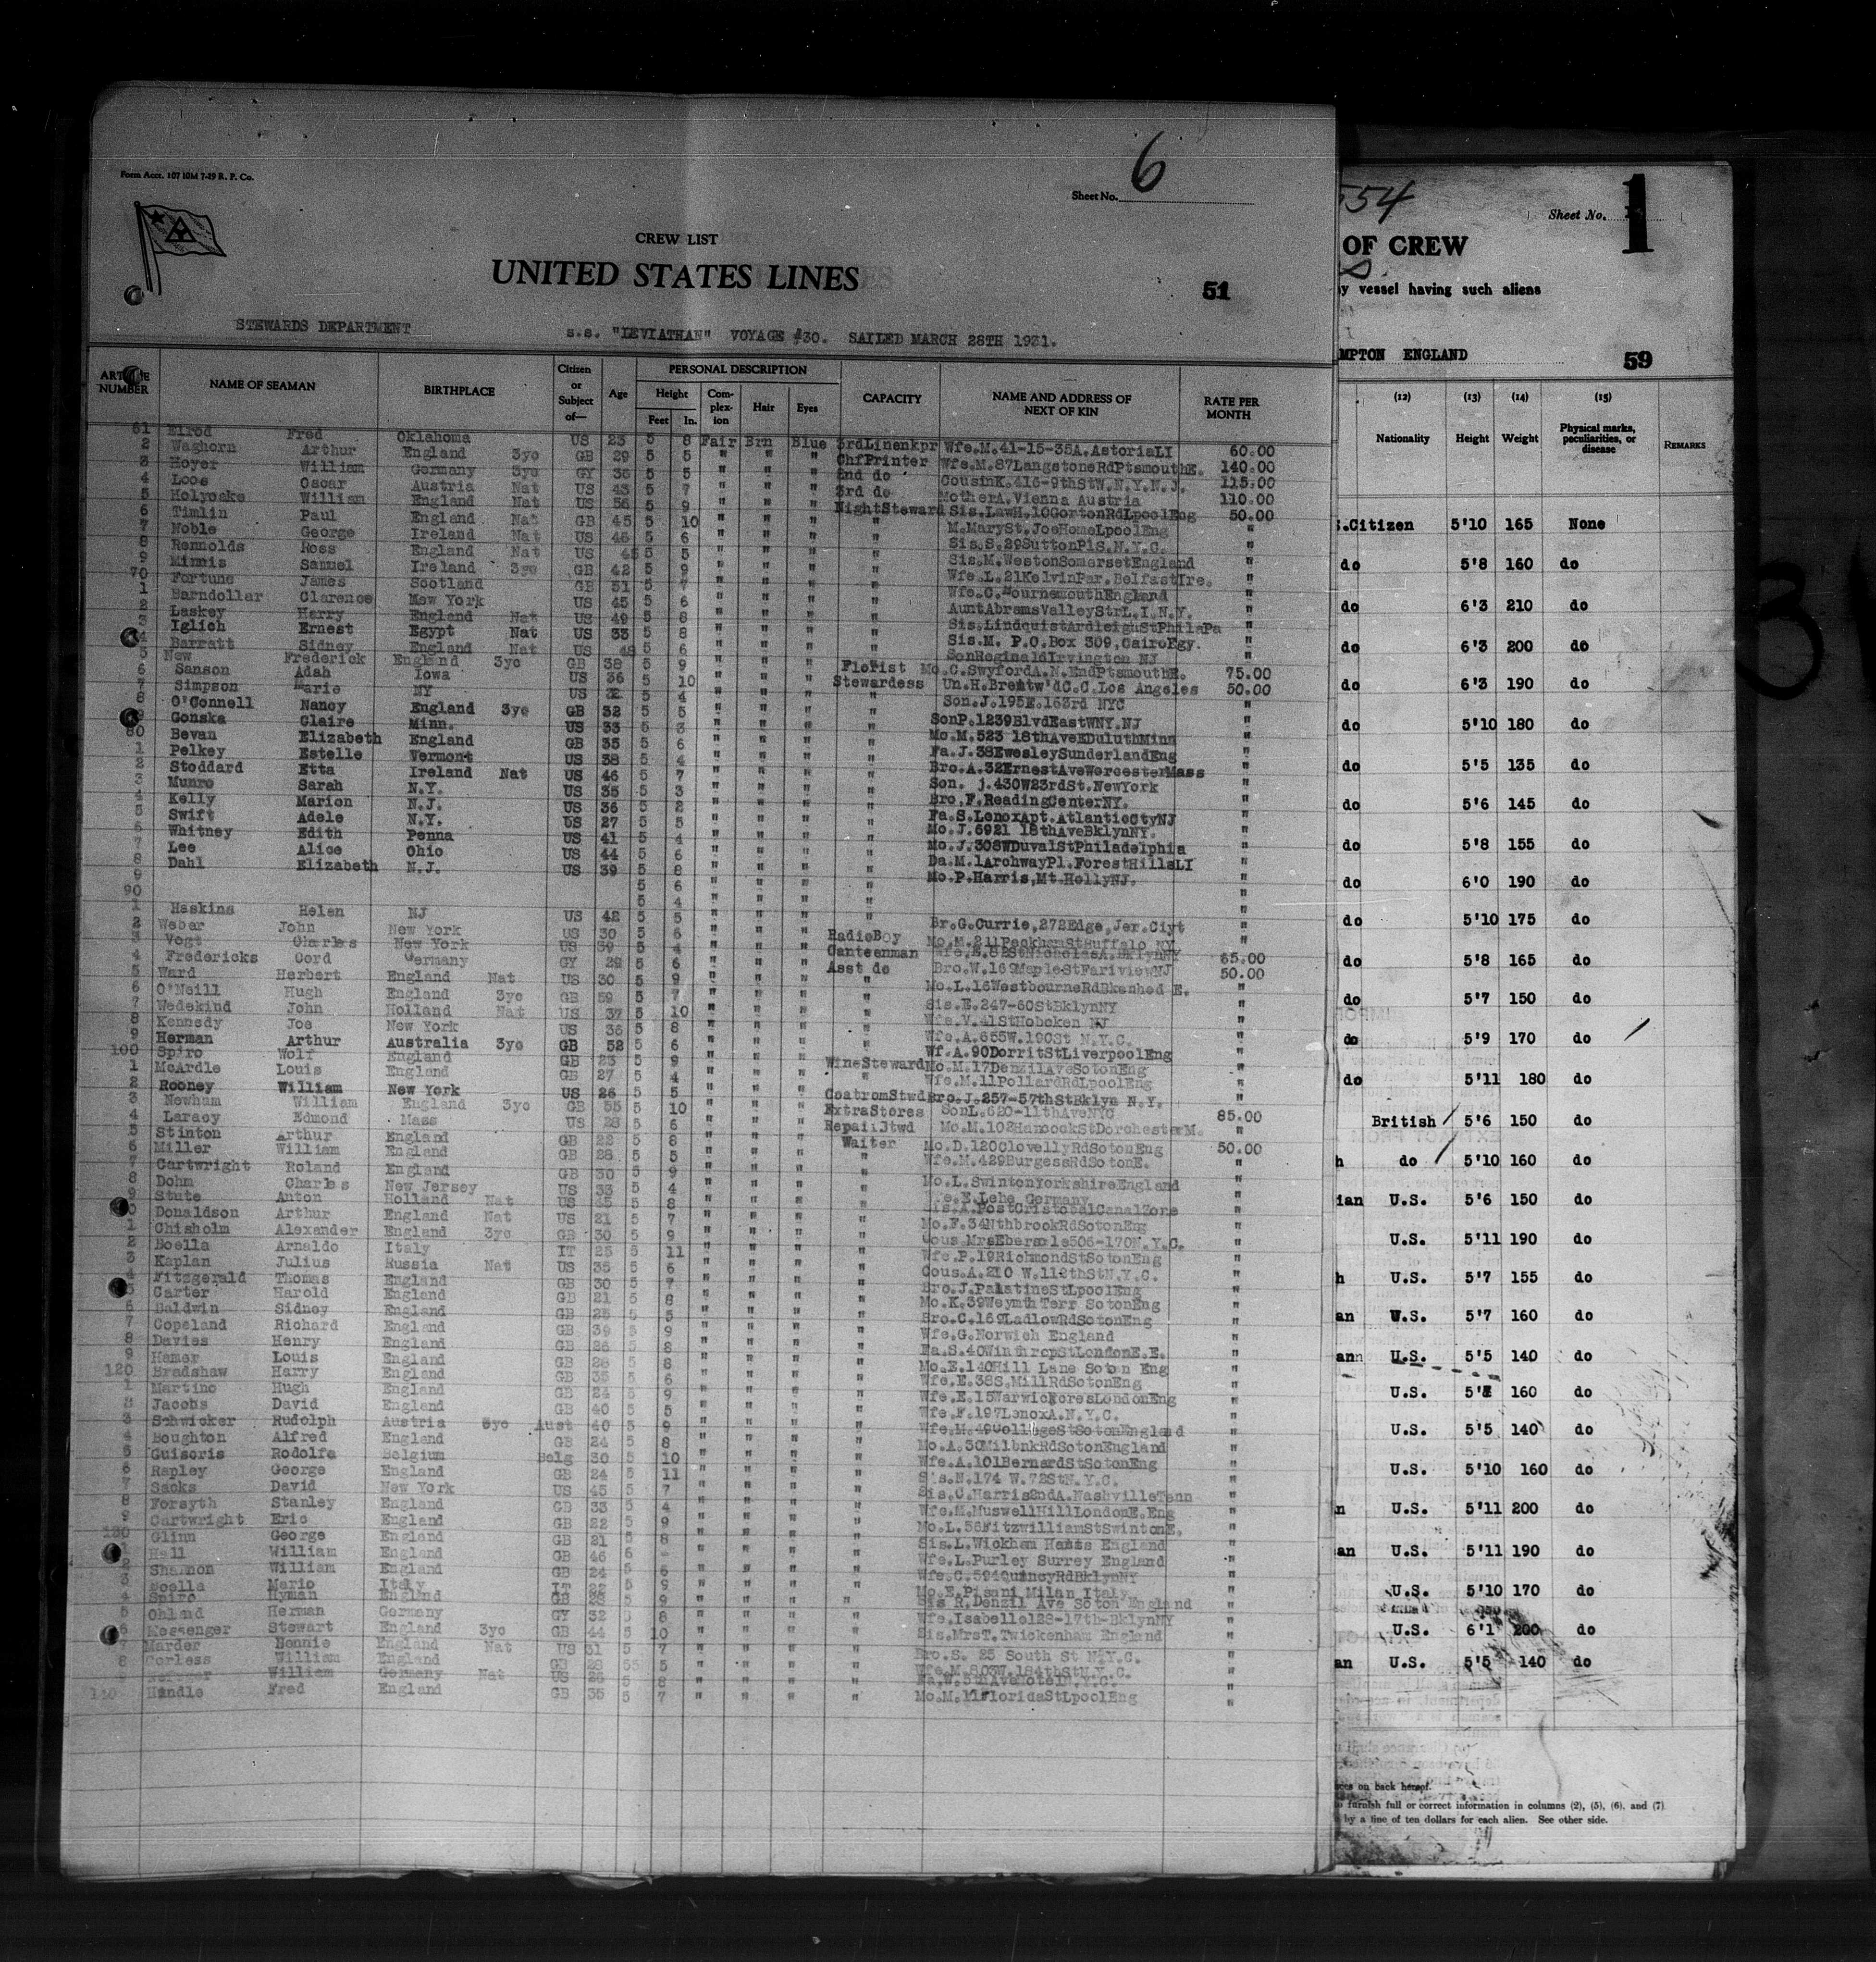 Form Acct. 107 10M 7-29 R. P. Co.
Sheet No. 6
CREW LIST
UNITED STATES LINES
51
STEWARDS DEPARTMENT s.s. "LEVIATHAN" VOYAGE #30. SAILED MARCH 28TH 1931.
NUMBER NAME OF SEAMAN BIRTHPLACE Citizen or Subject of— Age PERSONAL DESCRIPTION Height Feet In. Complexion Hair Eyes CAPACITY NAME AND ADDRESS OF NEXT OF KIN RATE PER MONTH
61 Elrod Fred Oklahoma US 23 5 8 Fair Brn Blue 3rdLinenkpr Wfe.M.41-15-35A.AstoriaLI 60.00
2 Waghorn Arthur England 3yc GB 29 5 5 " " " ChfPrinter Wfe.M.87LangstoneRdPtsmouthE. 140.00
3 Hoyer William Germany 3yc GY 36 5 5 " " " 2nd do CousinK.416-9thStW.N.Y.N.J. 115.00
4 Loos Oscar Austria Nat US 43 5 7 " " " 3rd do MotherA.Vienna Austria 110.00
5 Holyoake William England Nat US 56 5 9 " " " NightSteward Sis.LawH.10GortonRdLpoolEng 50.00
6 Timlin Paul England Nat GB 45 5 10 " " " " M.MarySt.JoeHomeLpoolEng "
7 Noble George Ireland Nat US 45 5 6 " " " " Sis.S.29SuttonPlS.N.Y.C. "
8 Rennolds Ross England Nat US 45 5 5 " " " " Sis.M.WestonSomersetEngland "
9 Mimmis Samuel Ireland 3yc GB 42 5 9 " " " " Wfe.L.21KelvinPar.BelfastIre. "
70 Fortune James Scotland GB 51 5 7 " " " " Wfe.C.MournemouthEngland "
1 Barndollar Clarence New York US 45 5 6 " " " " AuntAbramsValleyStrL.I.N.Y. "
2 Laskey Harry England Nat US 49 5 8 " " " " Sis.LindquistArdleighStPhilaPa "
3 Iglich Ernest Egypt Nat US 33 5 8 " " " " Sis.M. P.O.Box 309,CairoEgy. "
4 Barratt Sidney England Nat US 48 5 6 " " " " SonReginaldIrvington NJ "
5 New Frederick England 3yc GB 38 5 9 " " " Florist Mo.C.SwyfordA.N.EndPtsmouthE. 75.00
6 Sanson Adah Iowa US 36 5 10 " " " Stewardess Un.H.Brentw'dC.C.Los Angeles 50.00
7 Simpson Marie NY US 32 5 4 " " " " Son.J.195E.163rd NYC "
8 O'Connell Nancy England 3yc GB 32 5 5 " " " " SonP.1239BlvdEastWNY.NJ "
9 Gonska Claire Minn. US 33 5 3 " " " " Mo.M.523 18thAveEDuluthMinn "
80 Bevan Elizabeth England GB 35 5 6 " " " " Fa.J.38EwesleySunderlandEng "
1 Pelkey Estelle Vermont US 38 5 4 " " " " Bro.A.32ErnestAveWorcesterMass "
2 Stoddard Etta Ireland Nat US 46 5 7 " " " " Son. j.430W23rdSt.NewYork "
3 Munro Sarah N.Y. US 35 5 3 " " " " Bro,F.ReadingCenterNY. "
4 Kelly Marion N.J. US 36 5 2 " " " " Fa.S.LenoxApt.AtlanticCtyNJ "
5 Swift Adele N.Y. US 27 5 5 " " " " Mo.J.6921 18thAveBklynNY. "
6 Whitney Edith Penna US 41 5 4 " " " " Mo.J.308WDuvalStPhiladelphia "
7 Lee Alice Ohio US 44 5 6 " " " " Da.M.1ArchwayPl.ForestHillsLI "
8 Dahl Elizabeth N.J. US 39 5 8 " " " " Mo.P.Harris,Mt.HollyNJ. "
9 5 6 " " " " "
90 5 4 " " " " "
1 Haskins Helen NJ US 42 5 5 " " " " Br.G.Currie,272Edge,Jer.Ciyt "
2 Weber John New York US 30 5 6 " " " RadioBoy Mo.M.211PeckhamStBuffalo NY "
3 Vogt Charles New York US 39 5 4 " " " Canteenman Wfe.E.82StNicholasA.BklynNY 65.00
4 Fredericks Cord Germany GY 29 5 6 " " " Asst do Bro.W.169MapleStFariviewNJ 50.00
5 Ward Herbert England Nat US 30 5 9 " " " " Mo.L.16WestbourneRdBkenhed E. "
6 O'Neill Hugh England 3yc GB 59 5 7 " " " " Sis.E.247-60StBklynNY "
7 Wedekind John Holland Nat US 37 5 10 " " " " Wfe.V.41StHoboken NJ "
8 Kennedy Joe New York US 36 5 8 " " " " Wfe.A.655W.190St N.Y.C. "
9 Herman Arthur Australia 3yc GB 52 5 6 " " " " Wf.A.90DorritStLiverpoolEng "
100 Spiro Wolf England GB 23 5 9 " " " WineSteward Mo.M.17DenzilAveSotonEng "
1 McArdle Louis England GB 27 5 4 " " " " Wfe.M.11PollardRdLpoolEng "
2 Rooney William New York US 26 5 5 " " " CoatromStwd Bro.J.257-57thStBklyn N.Y. "
3 Newham William England 3yc GB 55 5 10 " " " ExtraStores SonL.620-11thAveNYC 85.00
4 Laracy Edmond Mass US 28 5 6 " " " Mo.M.102HancockStDorchesterM. "
5 Stinton Arthur England GB 22 5 8 " " " Waiter Mo.D.120ClovellyRdSotonEng 50.00
6 Miller William England GB 28 5 5 " " " " Wfe.M.429BurgessRdSotonE. "
7 Cartwright Roland England GB 30 5 9 " " " " Mo.L.SwintonYorkshireEngland "
8 Dohm Charles New Jersey US 33 5 4 " " " " Lehe Germany "
9 Stute Anton Holland Nat US 45 5 8 " " " " PostCristobalCanalZone "
Donaldson Arthur England Nat US 21 5 7 " " " " Mo.F.34NthbrookRdSotonEng "
1 Chisholm Alexander England 3yc GB 30 5 9 " " " " Cous.MrsEbersole506-170N.Y.C. "
2 Boella Arnaldo Italy IT 25 5 11 " " " " Wfe.P.19RichmondStSotonEng "
3 Kaplan Julius Russia Nat US 35 5 6 " " " " Cous.A.210 W.112thStN.Y.C. "
4 Fitzgerald Thomas England GB 30 5 7 " " " " Bro.J.PalatineStLpoolEng "
5 Carter Harold England GB 21 5 8 " " " " Mo.K.39Weymth Terr SotonEng "
6 Baldwin Sidney England GB 25 5 5 " " " " Bro.C.169LadlowRdSotonEng "
7 Copeland Richard England GB 39 5 9 " " " " Wfe.G.Norwich England "
8 Davies Henry England GB 26 5 8 " " " " Fa.S.40WinthropStLondonE.E. "
9 Hamer Louis England GB 28 5 8 " " " " Mo.E.140Hill Lane Soton Eng "
120 Bradshaw Harry England GB 35 5 6 " " " " Wfe.E.38S.MillRdSotonEng "
1 Martino Hugh England GB 24 5 9 " " " " Wfe.E.15WarwickcresLondonEng "
2 Jacobs David England GB 40 5 5 " " " " Wfe.F.197LenoxA.N.Y.C. "
3 Schwicker Rudolph Austria Aust 40 5 9 " " " " Wfe.M.49CollegeStSotonEngland "
4 Boughton Alfred England GB 24 5 8 " " " " Mo.A.30MilbnkRdSotonEngland "
5 Guisoris Rodolfe Belgium Belg 30 5 10 " " " " Wfe.A.101BernardStSotonEng "
6 Rapley George England GB 24 5 11 " " " " Sis.N.174 W.72StN.Y.C. "
7 Sacks David New York US 45 5 7 " " " " Sis.C.Harris2ndA.NashvilleTenn "
8 Forsyth Stanley England GB 33 5 4 " " " " Wfe.M.MuswellHillLondonE.Eng "
9 Cartwright Eric England GB 22 5 9 " " " " Mo.L.56FitzwilliamStSwintonE. "
130 Glinn George England GB 21 5 8 " " " " Sis.L.Wickham Hants England "
Hall William England GB 46 6 - " " " " Wfe.L.Purley Surrey England "
2 Shannon William England GB 24 5 6 " " " " Wfe.C.594QuincyRdBklynNY "
3 Boella Mario Italy IT 22 5 9 " " " " Mo.E.Pisani Milan Italy "
4 Spiro Hyman England GB 28 5 9 " " " " Sis R.Denzil Ave Soton England "
5 Ohland Herman Germany GY 32 5 8 " " " " Wfe.Isabelle128-17th-BklynNY "
6 Messenger Stewart England 3yc GB 44 5 10 " " " " Sis.MrsT.Twickenham England "
7 Marder Nonnie England Nat US 31 5 7 " " " " Bro.S. 25 South St N.Y.C. "
8 Corless William England GB 28 55 5 " " " " Wfe.M.803W.184thStN.Y.C. "
William Germany Nat US 26 5 8 " " " " "
Hindle Fred England GB 35 5 7 " " " " Mo.M.11FloridaStLpoolEng "
554
Sheet No. 1
OF CREW
y vessel having such aliens
MPTON ENGLAND 59
(12) (13) (14) (15)
Nationality Height Weight Physical marks, peculiarities, or disease REMARKS
.Citizen 5'10 165 None
do 5'8 160 do
do 6'3 210 do
do 6'3 200 do
do 6'3 190 do
do 5'10 180 do
do 5'5 135 do
do 5'6 145 do
do 5'8 155 do
do 6'0 190 do
do 5'10 175 do
do 5'8 165 do
do 5'7 150 do
do 5'9 170 do
do 5'11 180 do
British 5'6 150 do
h do 5'10 160 do
ian U.S. 5'6 150 do
U.S. 5'11 190 do
h U.S. 5'7 155 do
an U.S. 5'7 160 do
ann U.S. 5'5 140 do
U.S. 160 do
U.S. 5'5 140 do
U.S. 5'10 160 do
n U.S. 5'11 200 do
an U.S. 5'11 190 do
U.S. 5'10 170 do
U.S. 6'1 200 do
an U.S. 5'5 140 do
ces on back hereof.
o furnish full or correct information in columns (2), (5), (6), and (7)
by a fine of ten dollars for each alien. See other side.
3